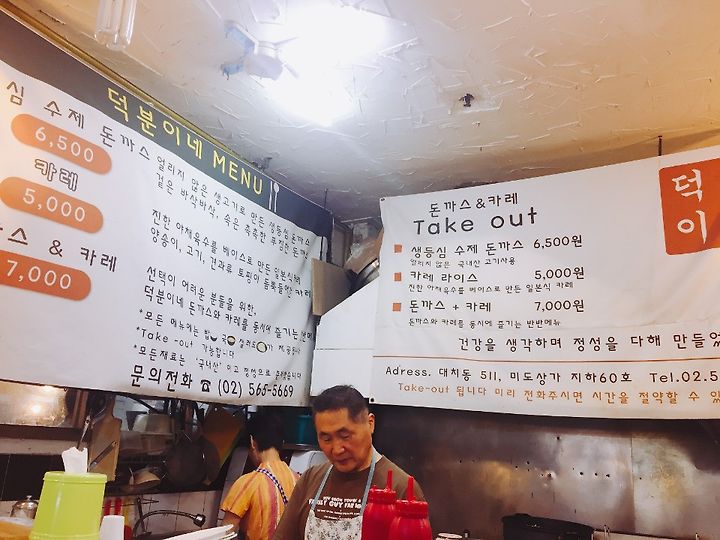 덕분이네 MENU
심 수제 돈까스
6,500
얼리지 않은 생고기로 만든 생등심 돈까스
겉은 바삭바삭, 속은 촉촉한 푸짐한 돈까
카레
5,000
진한 야채육수를 베이스로 만든 일본식
양송이, 고기, 견과류 토핑이 듬뿍들어간 카레
까스 & 카레
7,000
선택이 어려운 분들을 위한,
덕분이네 돈까스와 카레를 동시에 즐기는
*모든 메뉴에는 밥 국 샐러드가 제공됩니다
*Take -out 가능합니다
*모든재료는 '국내산' 이고 정성으로
문의전화 ☎ (02) 565-5669
돈까스&카레
Take out
생등심 수제 돈까스 6,500원
얼리지 않은 국내산 고기사용
카레 라이스 5,000원
진한 야채육수를 베이스로 만든 일본식 카레
돈까스 + 카레 7,000원
돈까스와 카레를 동시에 즐기는 반반메뉴
건강을 생각하며 정성을 다해 만들었
Adress. 대치동 511, 미도상가 지하60호 Tel.02.5
Take-out 됩니다 미리 전화주시면 시간을 절약할 수 있
덕
이
FAMILY GUY FAR